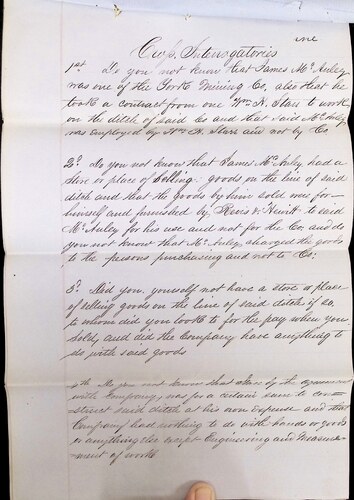 Cross Interrogatories
1st Do you not know that James McAuley
was one of the York Mining Co, also that he
took a contract from one Wm N. Starr to work
on the ditch of said Co and that said McAuley
was employed by Wm N. Starr and not by Co
2d Do you not know that James McAuley had a
store or place of Selling goods on the line of said
ditch and that the goods by him sold was for
himself and furnished by & Hewitt to said
McAuley for his use and not for the Co, and do
you not know that McAuley charged the goods
to the persons purchasing and not to Co;
3d Did you yourself not have a store or place
of selling goods on the line of said ditch if so,
to whom did you look to for the pay when you
sold, and did the Company have anything to
do with said goods
4th Do you not know that Starr by the agreement
with Company, was for a certain sum to con-
struct said ditch at his own expense and that
Company had nothing to do with hands or goods
or anything else except Engineering and Measure-
ment of work